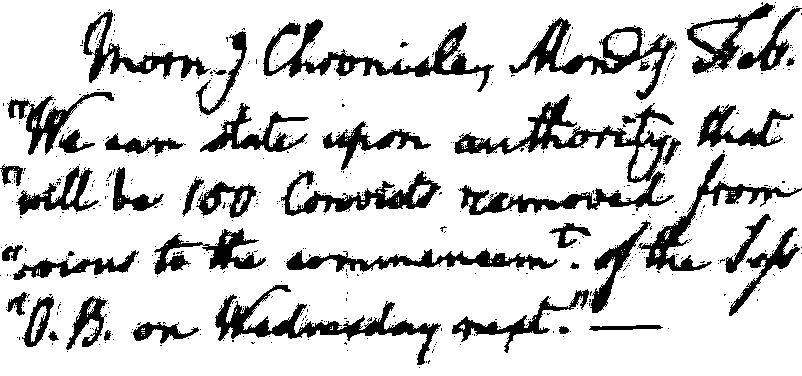 Morn.g Chronicle, Mond.y Feb.
"We can state upon authority, that
"will be 150 Convicts removed from
"vious to the commencem.t of the Sess
"O.B. on Wednesday next." —